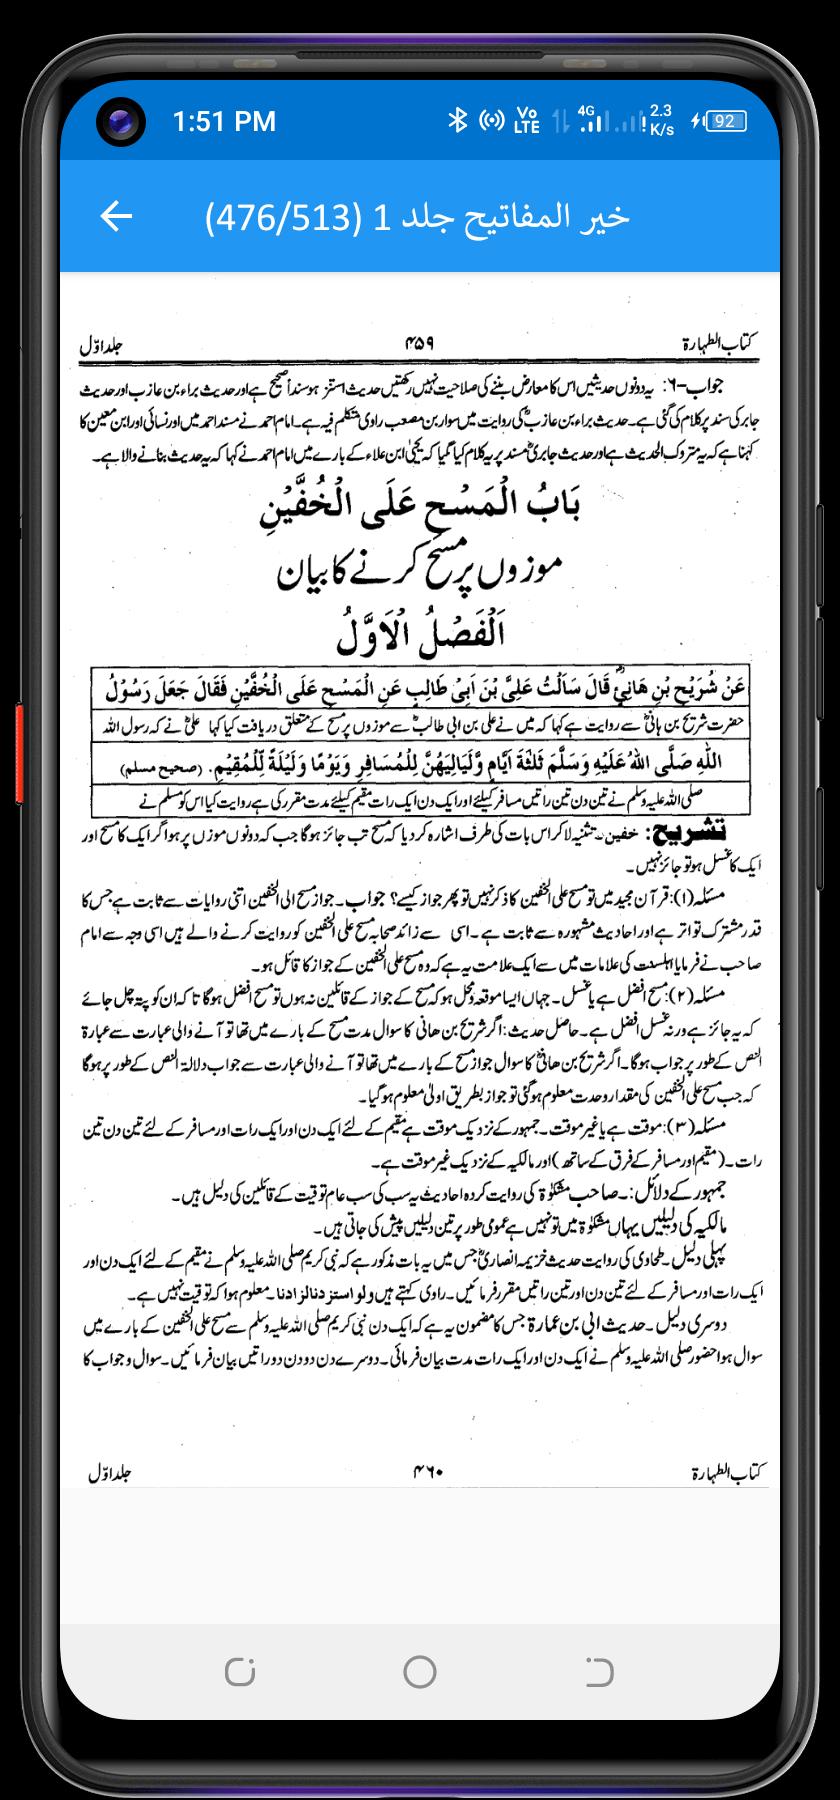 1:51 PM
Vo LTE 4G 2.3 K/s 92
خیر المفاتیح جلد 1 (476/513)
کتاب الطہارۃ ۴۵۹ جلد اوّل
جواب-۶: یہ دونوں حدیثیں اس کا معارض بننے کی صلاحیت نہیں رکھتیں حدیث استنز ہو سنداً صحیح ہے اور حدیث براء بن عازب اور حدیث
جابر کی سند پر کلام کی گئی ہے۔ حدیث براء بن عازبؓ کی روایت میں سوار بن مصعب راوی متکلم فیہ ہے۔ امام احمد نے مسند احمد میں اور نسائی اور ابن معین کا
کہنا ہے کہ یہ متروک الحدیث ہے اور حدیث جابریؓ مسند پر یہ کلام کیا گیا کہ یحییٰ ابن علاء کے بارے میں امام احمد نے کہا کہ یہ حدیث بنانے والا ہے۔
بَابُ الْمَسْحِ عَلَی الْخُفَّیْنِ
موزوں پر مسح کرنے کا بیان
اَلْفَصْلُ الْاَوَّلُ
عَنْ شُرَیْحِ بْنِ هَانِیْؓ قَالَ سَاَلْتُ عَلِیَّ بْنَ اَبِیْ طَالِبٍ عَنِ الْمَسْحِ عَلَی الْخُفَّیْنِ فَقَالَ جَعَلَ رَسُوْلُ
حضرت شریح بن ہانیؓ سے روایت ہے کہا کہ میں نے علی بن ابی طالبؓ سے موزوں پر مسح کے متعلق دریافت کیا کہا علیؓ نے کہ رسول اللہ
اللّٰهِ صَلَّی اللّٰهُ عَلَیْهِ وَسَلَّمَ ثَلٰثَةَ اَیَّامٍ وَّلَیَالِیَهُنَّ لِلْمُسَافِرِ وَیَوْمًا وَّلَیْلَةً لِّلْمُقِیْمِ. (صحیح مسلم)
صلی اللہ علیہ وسلم نے تین دن تین راتیں مسافر کیلئے اور ایک دن ایک رات مقیم کیلئے مدت مقرر کی ہے روایت کیا اس کو مسلم نے
تشریح: خفین۔ تثنیہ لا کر اس بات کی طرف اشارہ کر دیا کہ مسح تب جائز ہوگا جب کہ دونوں موزں پر ہو اگر ایک کا مسح اور
ایک کا غسل ہو تو جائز نہیں۔
مسئلہ (۱): قرآن مجید میں تو مسح علی الخفین کا ذکر نہیں تو پھر جواز کیسے؟ جواب۔ جواز مسح الی الخفین اتنی روایات سے ثابت ہے جس کا
قدر مشترک تواتر ہے اور احادیث مشہورہ سے ثابت ہے۔ اسی سے زائد صحابہ مسح علی الخفین کو روایت کرنے والے ہیں اسی وجہ سے امام
صاحب نے فرمایا اہلسنت کی علامات میں سے ایک علامت یہ ہے کہ وہ مسح علی الخفین کے جواز کا قائل ہو۔
مسئلہ (۲): مسح افضل ہے یا غسل۔ جہاں ایسا موقعہ و محل ہو کہ مسح کے جواز کے قائلین نہ ہوں تو مسح افضل ہوگا تا کہ ان کو پتہ چل جائے
کہ یہ جائز ہے ورنہ غسل افضل ہے۔ حاصل حدیث: اگر شریح بن ھانی کا سوال مدت مسح کے بارے میں تھا تو آنے والی عبارت سے عبارۃ
النص کے طور پر جواب ہوگا۔ اگر شریح بن ھانیؓ کا سوال جواز مسح کے بارے میں تھا تو آنے والی عبارت سے جواب دلالۃ النص کے طور پر ہوگا
کہ جب مسح علی الخفین کی مقدار وحدت معلوم ہوگئی تو جواز بطریق اولیٰ معلوم ہو گیا۔
مسئلہ (۳): موقت ہے یا غیر موقت۔ جمہور کے نزدیک موقت ہے مقیم کے لئے ایک دن اور ایک رات اور مسافر کے لئے تین دن تین
رات۔ (مقیم اور مسافر کے فرق کے ساتھ) اور مالکیہ کے نزدیک غیر موقت ہے۔
جمہور کے دلائل:۔ صاحب مشکوٰۃ کی روایت کردہ احادیث یہ سب کی سب عام توقیت کے قائلین کی دلیل ہیں۔
مالکیہ کی دلیلیں یہاں مشکوٰۃ میں تو نہیں ہے عمومی طور پر تین دلیلیں پیش کی جاتی ہیں۔
پہلی دلیل۔ طحاوی کی روایت حدیث خزیمہ انصاریؓ جس میں یہ بات مذکور ہے کہ نبی کریم صلی اللہ علیہ وسلم نے مقیم کے لئے ایک دن اور
ایک رات اور مسافر کے لئے تین دن اور تین راتیں مقرر فرمائیں۔ راوی کہتے ہیں ولو استزدنا لزادنا۔ معلوم ہوا کہ توقیت نہیں ہے۔
دوسری دلیل۔ حدیث ابی بن عمارۃ جس کا مضمون یہ ہے کہ ایک دن نبی کریم صلی اللہ علیہ وسلم سے مسح علی الخفین کے بارے میں
سوال ہوا حضور صلی اللہ علیہ وسلم نے ایک دن اور ایک رات مدت بیان فرمائی۔ دوسرے دن دو دن دو راتیں بیان فرمائیں۔ سوال و جواب کا
کتاب الطہارۃ ۴۶۰ جلد اوّل